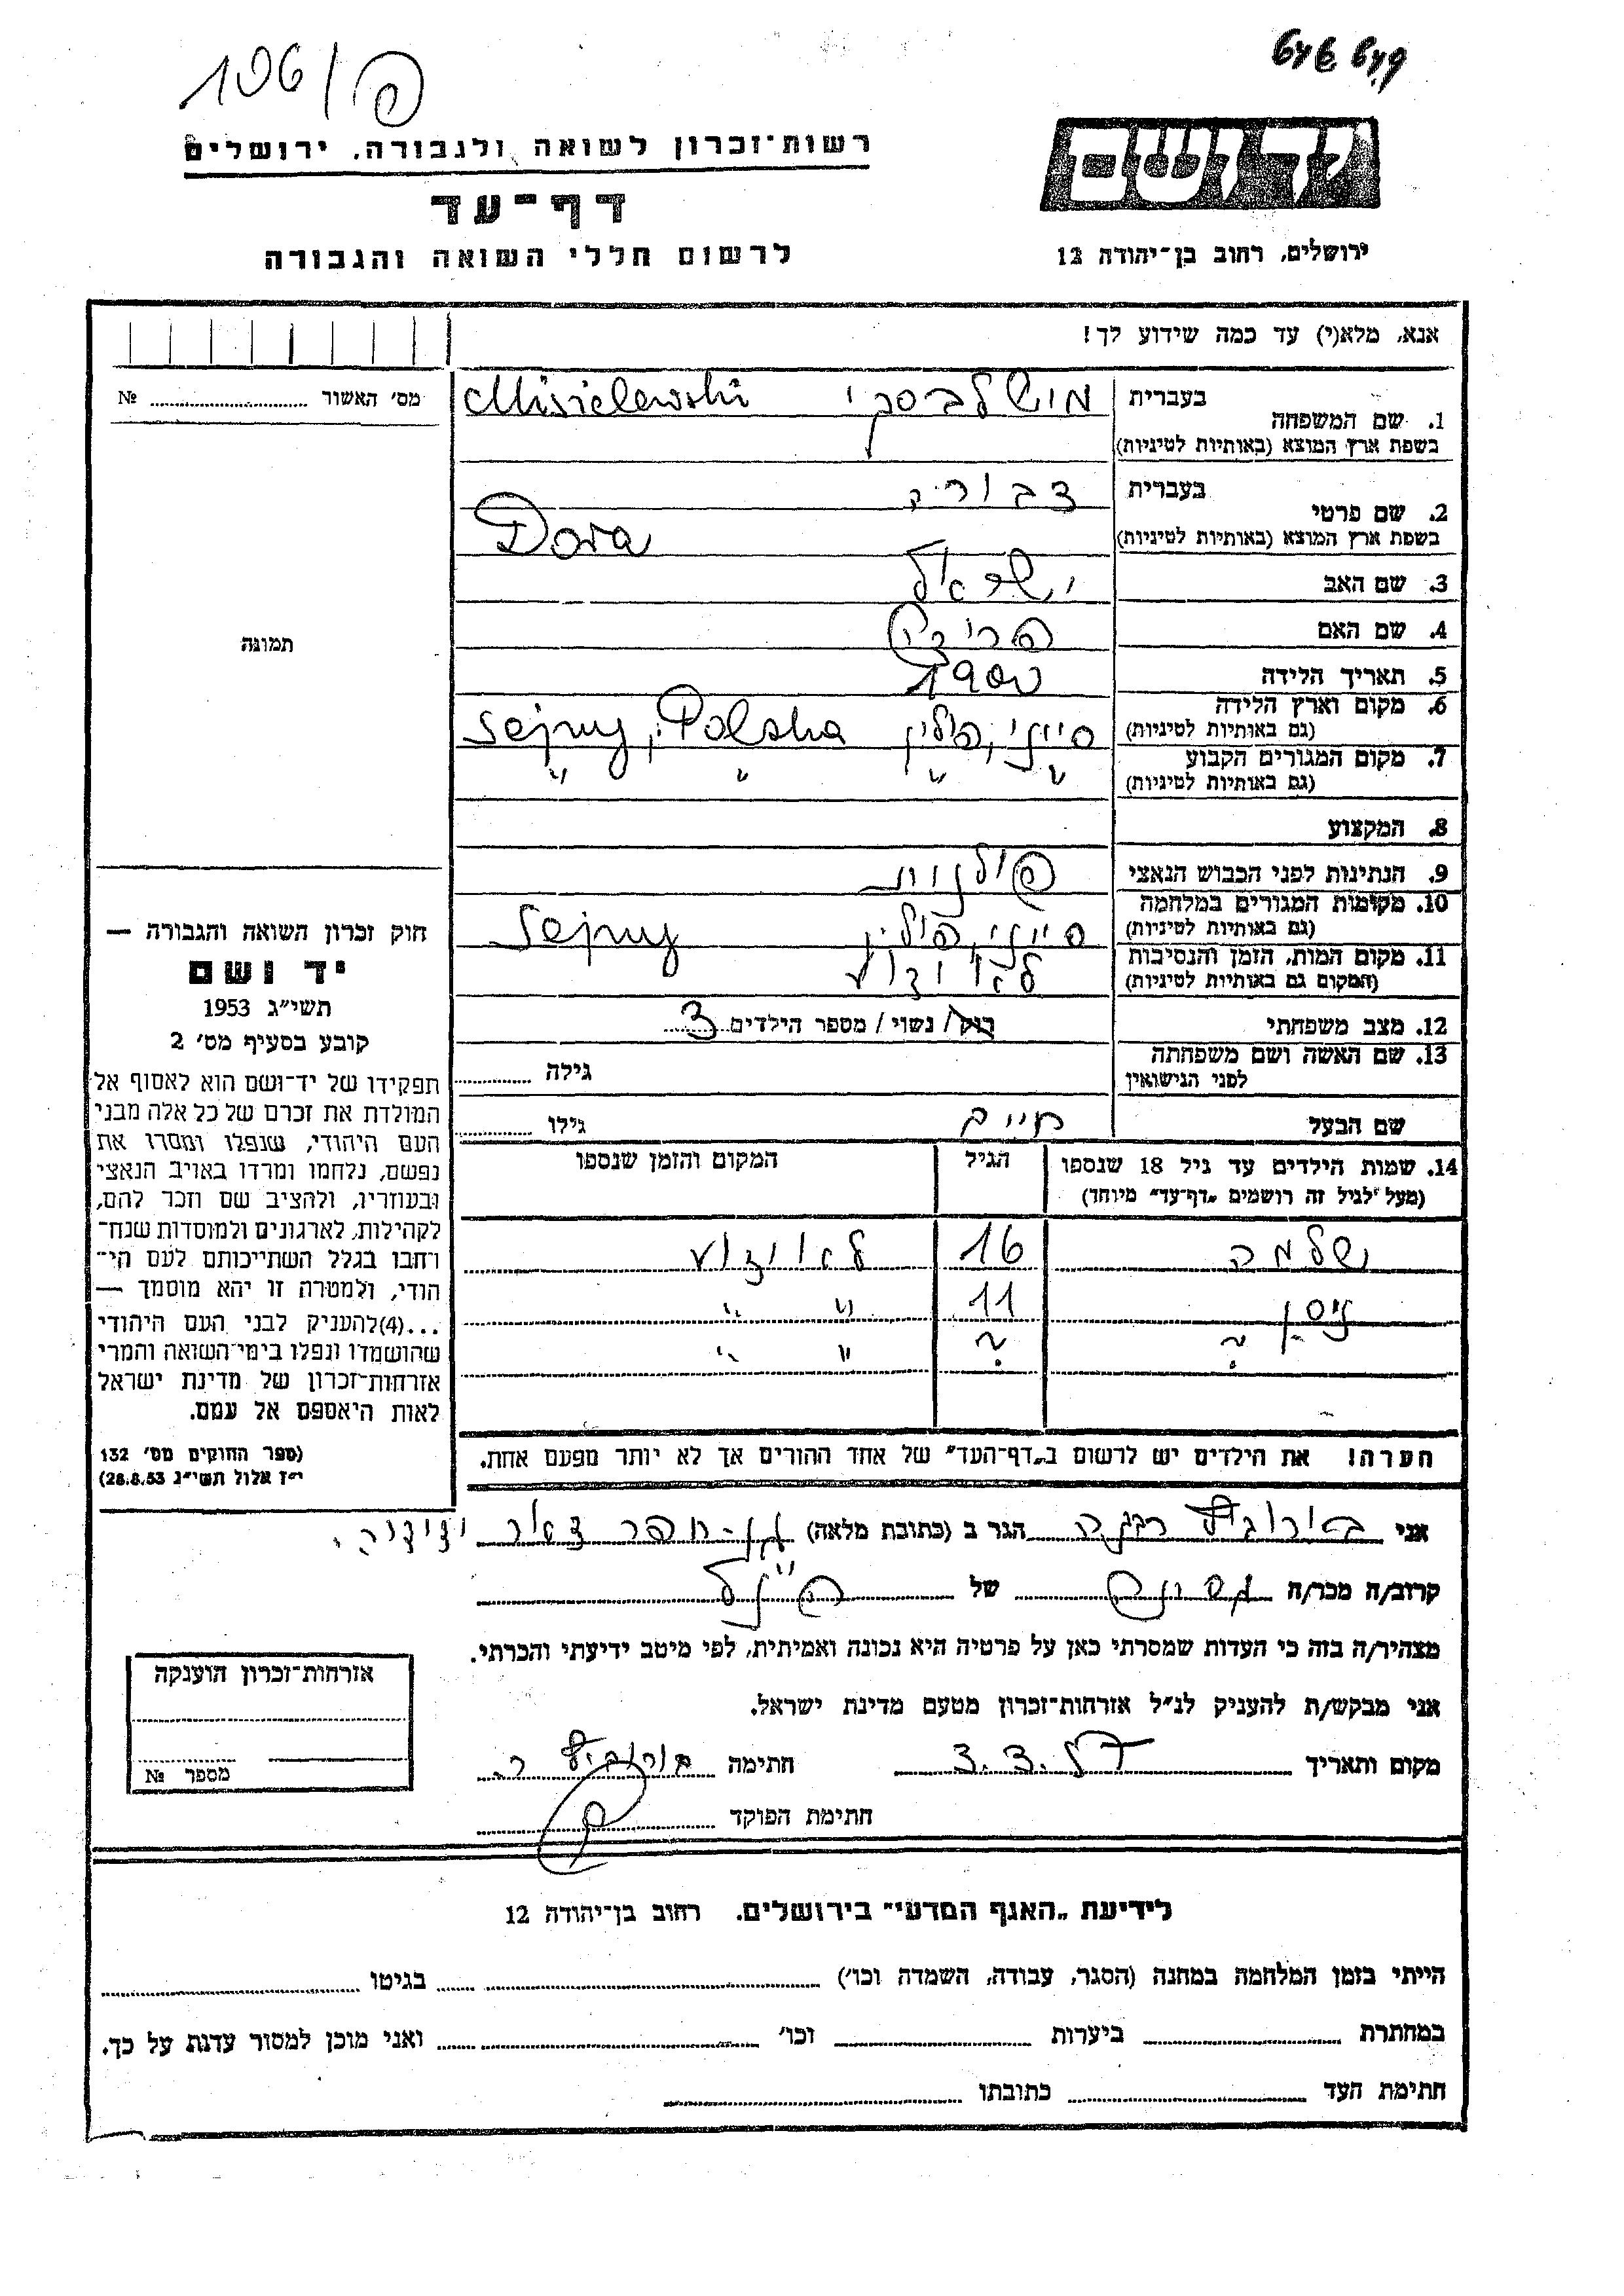 106/פ
רשות־זכרון לשואה ולגבורה, ירושלים
דף־עד
לרשום חללי השואה והגבורה
יד ושם
ירושלים, רחוב בן־יהודה 12
אנא, מלא(י) עד כמה שידוע לך!
מס׳ האשור № ............
תמונה
1. שם המשפחה בעברית מישלבסקי Misielewski
בשפת ארץ המוצא (באותיות לטיניות)
2. שם פרטי בעברית דבורה
בשפת ארץ המוצא (באותיות לטיניות) Dora
3. שם האב ישראל
4. שם האם
5. תאריך הלידה 1900
6. מקום וארץ הלידה (גם באותיות לטיניות) סייני, פולין Sejny, Polska
7. מקום המגורים הקבוע (גם באותיות לטיניות) " " " "
8. המקצוע
9. הנתינות לפני הכבוש הנאצי פולנית
10. מקומות המגורים במלחמה (גם באותיות לטיניות) סייני, פולין Sejny
11. מקום המות, הזמן והנסיבות (המקום גם באותיות לטיניות) לא ידוע
12. מצב משפחתי רוק/ נשוי/ מספר הילדים 3
13. שם האשה ושם משפחתה לפני הנישואין גילה ............
שם הבעל חיים גילו ............
14. שמות הילדים עד גיל 18 שנספו הגיל המקום והזמן שנספו
(מעל לגיל זה רושמים „דף־עד״ מיוחד)
שלמה 16 לא ידוע
ניסן 11 " "
? ? " "
הערה! את הילדים יש לרשום ב„דף־העד״ של אחד ההורים אך לא יותר מפעם אחת.
חוק זכרון השואה והגבורה —
יד ושם
תשי״ג 1953
קובע בסעיף מס׳ 2
תפקידו של יד־ושם הוא לאסוף אל
המולדת את זכרם של כל אלה מבני
העם היהודי, שנפלו ומסרו את
נפשם, נלחמו ומרדו באויב הנאצי
ובעוזריו, ולהציב שם וזכר להם,
לקהילות, לארגונים ולמוסדות שנח־
רבו בגלל השתייכותם לעם הי־
הודי, ולמטרה זו יהא מוסמך —
...(4)להעניק לבני העם היהודי
שהושמדו ונפלו בימי־השואה והמרי
אזרחות־זכרון של מדינת ישראל
לאות היאספם אל עמם.
(ספר החוקים מס׳ 132
י״ז אלול תשי״ג 28.8.53)
אני הגר ב (כתובת מלאה)
קרוב/ה מכר/ה של הנ״ל
מצהיר/ה בזה כי העדות שמסרתי כאן על פרטיה היא נכונה ואמיתית, לפי מיטב ידיעתי והכרתי.
אני מבקש/ת להעניק לנ״ל אזרחות־זכרון מטעם מדינת ישראל.
מקום ותאריך חתימה
חתימת הפוקד
אזרחות־זכרון הוענקה
מספר №
לידיעת „האגף המדעי״ בירושלים. רחוב בן־יהודה 12
הייתי בזמן המלחמה במחנה (הסגר, עבודה, השמדה וכו׳) ............ בגיטו ............
במחתרת ............ ביערות ............ וכו׳ ............ ואני מוכן למסור עדות על כך.
חתימת העד ............ כתובתו ............